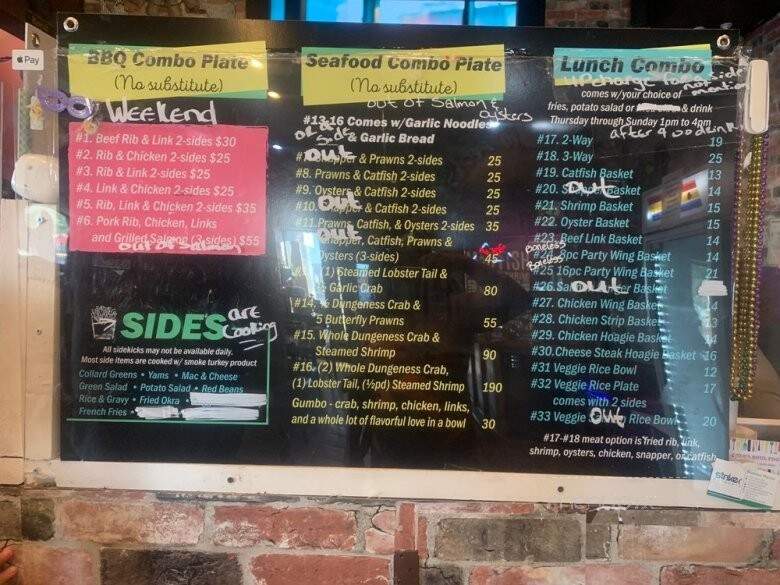 Pay
BBQ Combo Plate
(No substitute)
Weekend
#1. Beef Rib & Link 2-sides $30
#2. Rib & Chicken 2-sides $25
#3. Rib & Link 2-sides $25
#4. Link & Chicken 2-sides $25
#5. Rib, Link & Chicken 2-sides $35
#6. Pork Rib, Chicken, Links
and Grilled Salmon (3-sides) $55
out of Salmon
SIDES are
Cooking
All sidekicks may not be available daily.
Most side items are cooked w/ smoke turkey product
Collard Greens • Yams • Mac & Cheese
Green Salad • Potato Salad • Red Beans
Rice & Gravy • Fried Okra
French Fries
Seafood Combo Plate
(No substitute)
out of Salmon &
oysters
#13-16 Comes w/Garlic Noodles
OR & Side & Garlic Bread
out & Prawns 2-sides 25
#8. Prawns & Catfish 2-sides 25
#9. Oysters & Catfish 2-sides 25
#10. out & Catfish 2-sides 25
#11. Prawns, Catfish, & Oysters 2-sides 35
out Snapper, Catfish, Prawns &
Oysters (3-sides) 45
(1) Steamed Lobster Tail &
Garlic Crab 80
#14. ½ Dungeness Crab &
5 Butterfly Prawns 55
#15. Whole Dungeness Crab &
Steamed Shrimp 90
#16. (2) Whole Dungeness Crab,
(1) Lobster Tail, (½pd) Steamed Shrimp 190
Gumbo - crab, shrimp, chicken, links,
and a whole lot of flavorful love in a bowl 30
Lunch Combo
upcharge for side not mention
comes w/your choice of
fries, potato salad or & drink
Thursday through Sunday 1pm to 4pm
after 4 no drink
#17. 2-Way 19
#18. 3-Way 25
#19. Catfish Basket 13
#20. out Basket 14
#21. Shrimp Basket 15
#22. Oyster Basket 15
#23. Beef Link Basket 14
Boneless 8pc Party Wing Basket 14
Boneless
#25 16pc Party Wing Basket 21
#26. out Basket
#27. Chicken Wing Basket 14
#28. Chicken Strip Basket 13
#29. Chicken Hoagie Basket 14
#30. Cheese Steak Hoagie Basket 16
#31 Veggie Rice Bowl 12
#32 Veggie Rice Plate 17
comes with 2 sides
#33 Veggie out Rice Bowl 20
#17-#18 meat option is fried rib, link,
shrimp, oysters, chicken, snapper, or catfish